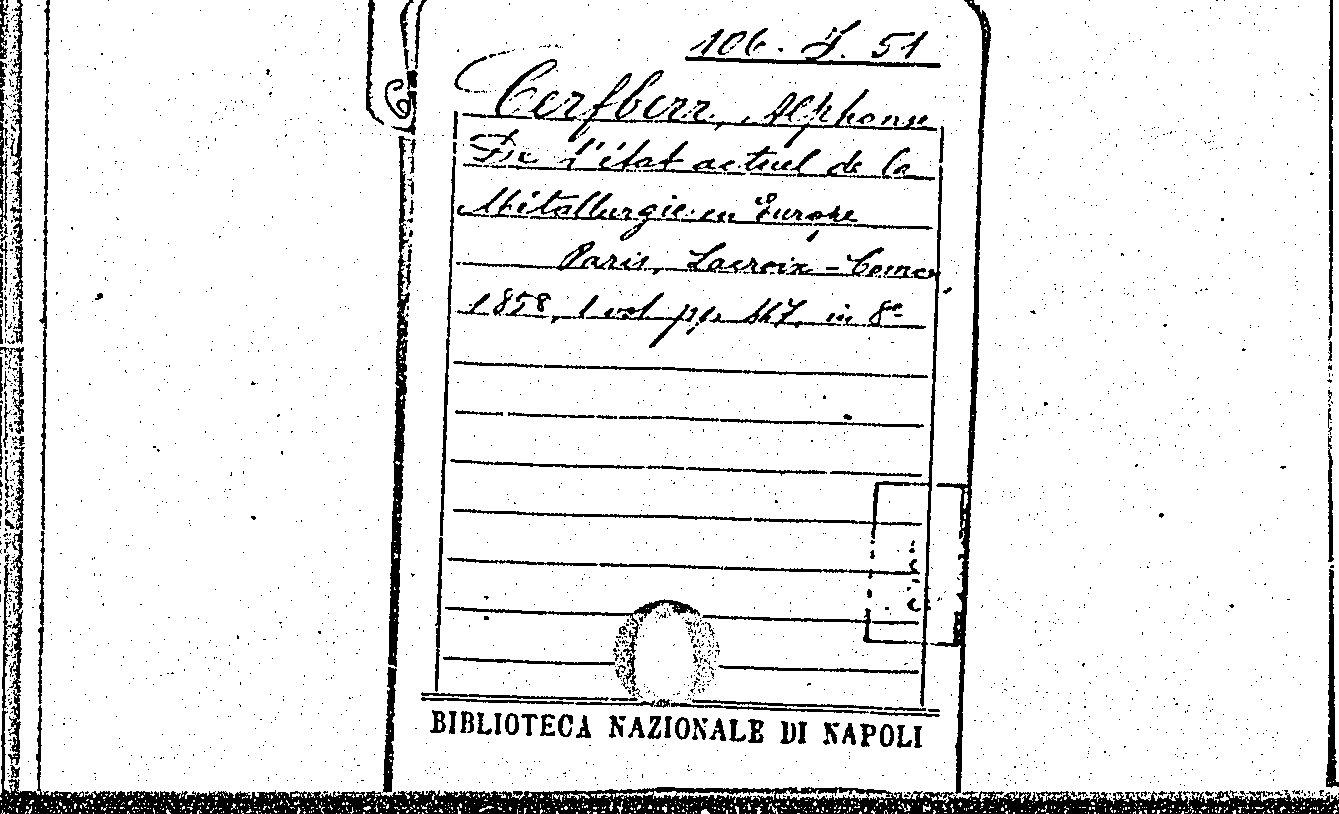 106. J. 51
Cerfberr, Alphonse
De l'état actuel de la
Métallurgie en Europe
Paris, Lacroix-Comon
1858, 1 vol. pp. 447. in 8º
BIBLIOTECA NAZIONALE DI NAPOLI